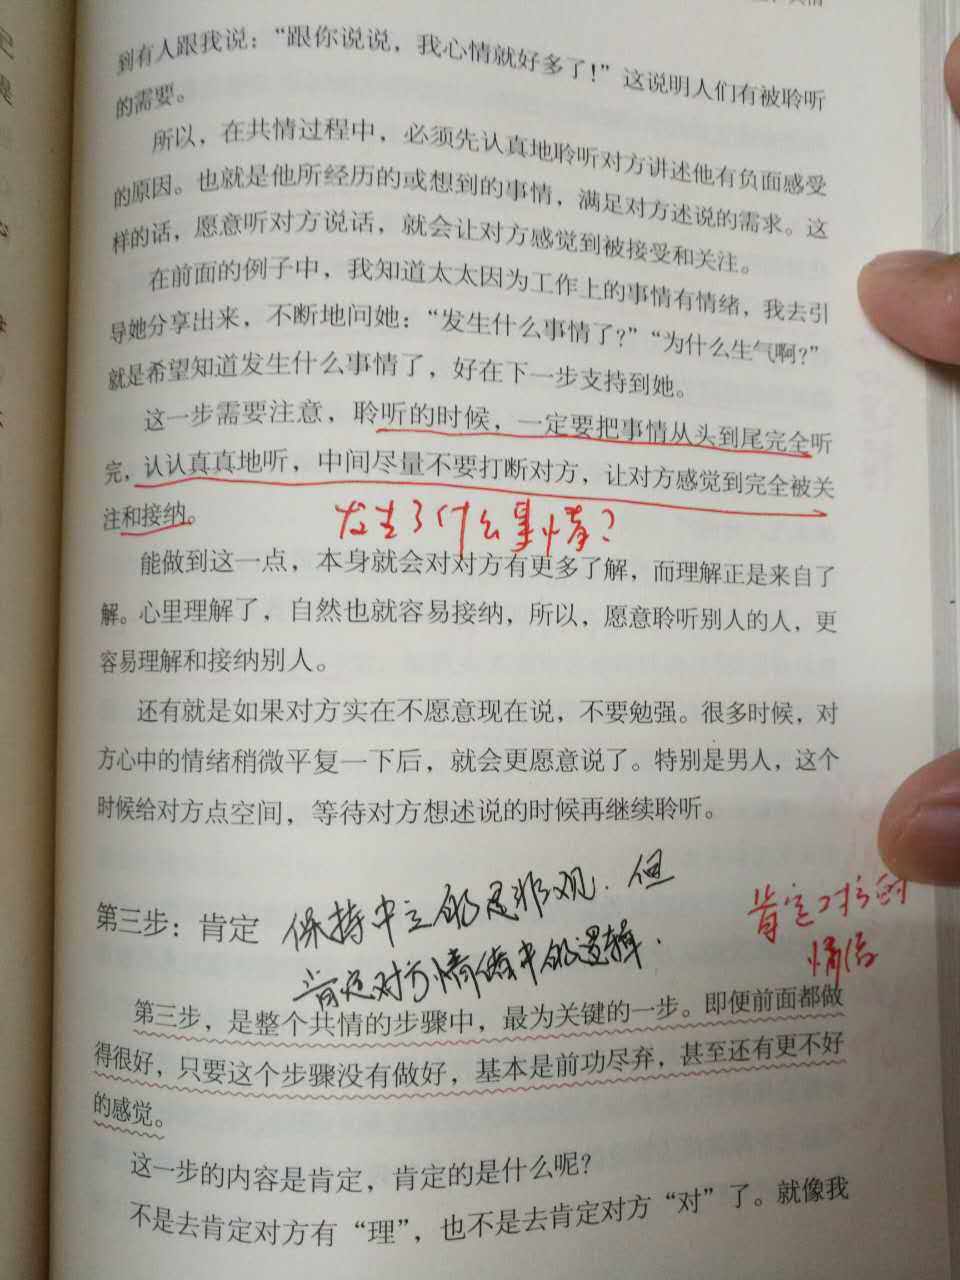 到有人跟我说：“跟你说说，我心情就好多了！”这说明人们有被聆听
的需要。
所以，在共情过程中，必须先认真地聆听对方讲述他有负面感受
的原因。也就是他所经历的或想到的事情，满足对方述说的需求。这
样的话，愿意听对方说话，就会让对方感觉到被接受和关注。
在前面的例子中，我知道太太因为工作上的事情有情绪，我去引
导她分享出来，不断地问她：“发生什么事情了？”“为什么生气啊？”
就是希望知道发生什么事情了，好在下一步支持到她。
这一步需要注意，聆听的时候，一定要把事情从头到尾完全听
完，认认真真地听，中间尽量不要打断对方，让对方感觉到完全被关
注和接纳。
发生了什么事情？
能做到这一点，本身就会对对方有更多了解，而理解正是来自了
解。心里理解了，自然也就容易接纳，所以，愿意聆听别人的人，更
容易理解和接纳别人。
还有就是如果对方实在不愿意现在说，不要勉强。很多时候，对
方心中的情绪稍微平复一下后，就会更愿意说了。特别是男人，这个
时候给对方点空间，等待对方想述说的时候再继续聆听。
第三步：肯定
保持中立的是非观．但
肯定对方情绪中的逻辑．
肯定对方的
情绪
第三步，是整个共情的步骤中，最为关键的一步。即便前面都做
得很好，只要这个步骤没有做好，基本是前功尽弃，甚至还有更不好
的感觉。
这一步的内容是肯定，肯定的是什么呢？
不是去肯定对方有“理”，也不是去肯定对方“对”了。就像我